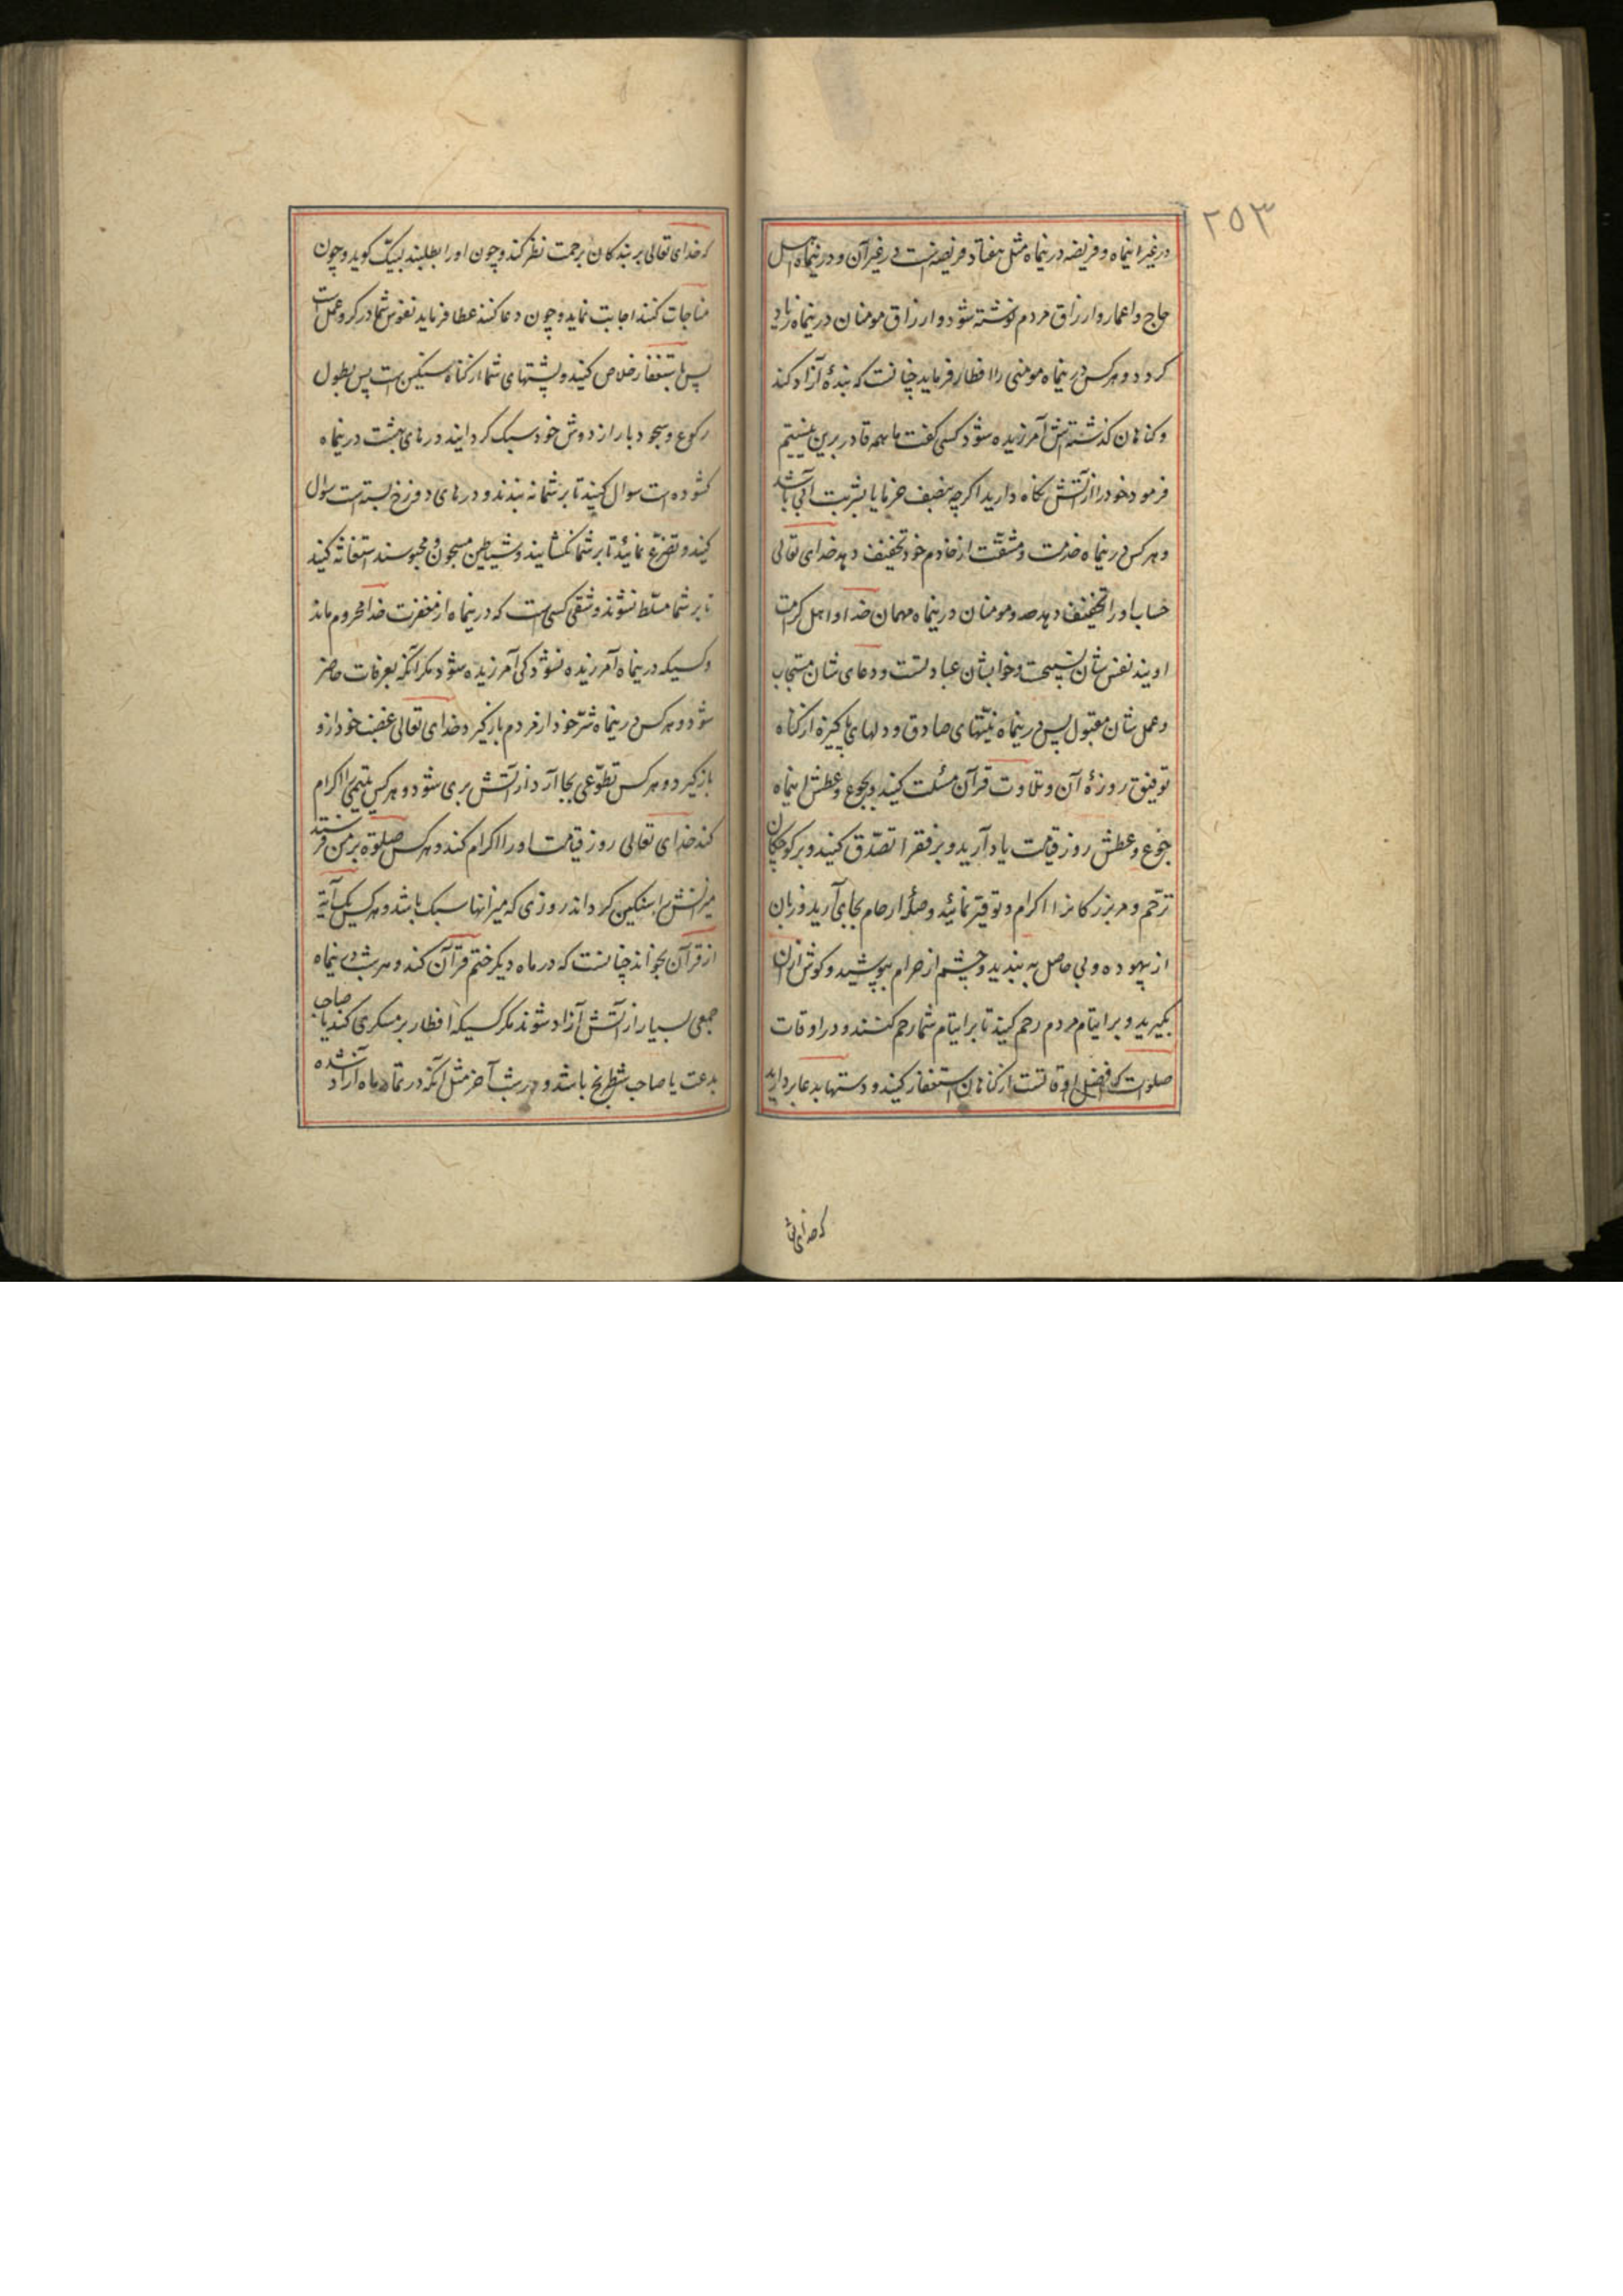 ۲۵۳
در غیر اینماه و فریضه در اینماه مثل هفتاد فریضه است در غیر آن و در اینماه اهل
حاج و اعمار و ارزاق مردم نوشته شود و ارزاق مومنان در اینماه زیاد
کردد و هرکس در اینماه مومنی را افطار فرماید چنانست که بندهٔ آزاد کند
و کناهان کذشته اش آمرزیده شود کسی کفت ما همه قادر برین نیستیم
فرمود خود را از آتش نکاه دارید اکرچه بنصف خرما یا بشربت آبی باشد
و هرکس در اینماه خدمت و مشقّت از خادم خود تخفیف دهد خدای تعالی
حساب او را تخفیف دهد و مومنان در اینماه مهمان خدا و اهل کرامت
اویند نفس شان تسبیحست و خوابشان عبادتست و دعای شان مستجاب
و عمل شان مقبول پس در اینماه نیّتهای صادق و دلهای پاکیزه از کناه
توفیق روزهٔ آن و تلاوت قرآن مسئلت کنید و بجوع و عطش اینماه
جوع و عطش روز قیامت یاد آرید و بر فقرا تصدّق کنید و بر کوچکان
ترحّم و مر بزرکانرا اکرام و توقیر نمائید و صلهٔ ارحام بجای آرید و زبان
از بیهوده و بی حاصل به بندید و چشم از حرام بپوشید و کوش ازان
بکیرید و بر ایتام مردم رحم کنید تا بر ایتام شما رحم کنند و در اوقات
صلوات که افضل اوقاتست از کناهان استغفار کنید و دستها بدعا بردارید
که خدای تعا
که خدای تعالی بر بندکان برحمت نظر کند و چون او را بطلبند لبیک کوید و چون
مناجات کنند اجابت نماید و چون دعا کنند عطا فرماید نفوس شما در کرو عمل است
پس باستغفار خلاص کنید و پشتهای شما از کناه سنکین است پس بطول
رکوع و سجود بار از دوش خود سبک کردانید و درهای بهشت در اینماه
کشوده است سوال کنید تا بر شما نه بندند و درهای دوزخ بسته است سوال
کنید و تضرّع نمائید تا بر شما نکشایند و شیاطین مسجون و محبوسند استغاثه کنید
تا بر شما مسلّط نشوند و شقی کسی است که در اینماه از مغفرت خدا محروم ماند
و کسیکه در اینماه آمرزیده نشود کی آمرزیده شود مکر آنکه بعرفات حاضر
شود و هرکس در اینماه شرّ خود از مردم باز کیرد خدای تعالی غضب خود ازو
باز کیرد و هرکس تطوّعی بجا آرد از آتش بری شود و هرکس یتیمی را اکرام
کند خدای تعالی روز قیامت او را اکرام کند و هرکس صلوة بر من فرستد
میزانش را سنکین کرداند روزی که میزانها سبک باشد و هرکس یک آیة
از قرآن بخواند چنانست که در ماه دیکر ختم قرآن کند و هر شب در اینماه
جمعی بسیار از آتش آزاد شوند مکر کسیکه افطار بر مسکری کند یا صاحب
بدعت یا صاحب شطرنج باشد و در شب آخر مثل آنکه در تمام ماه آزاد شده